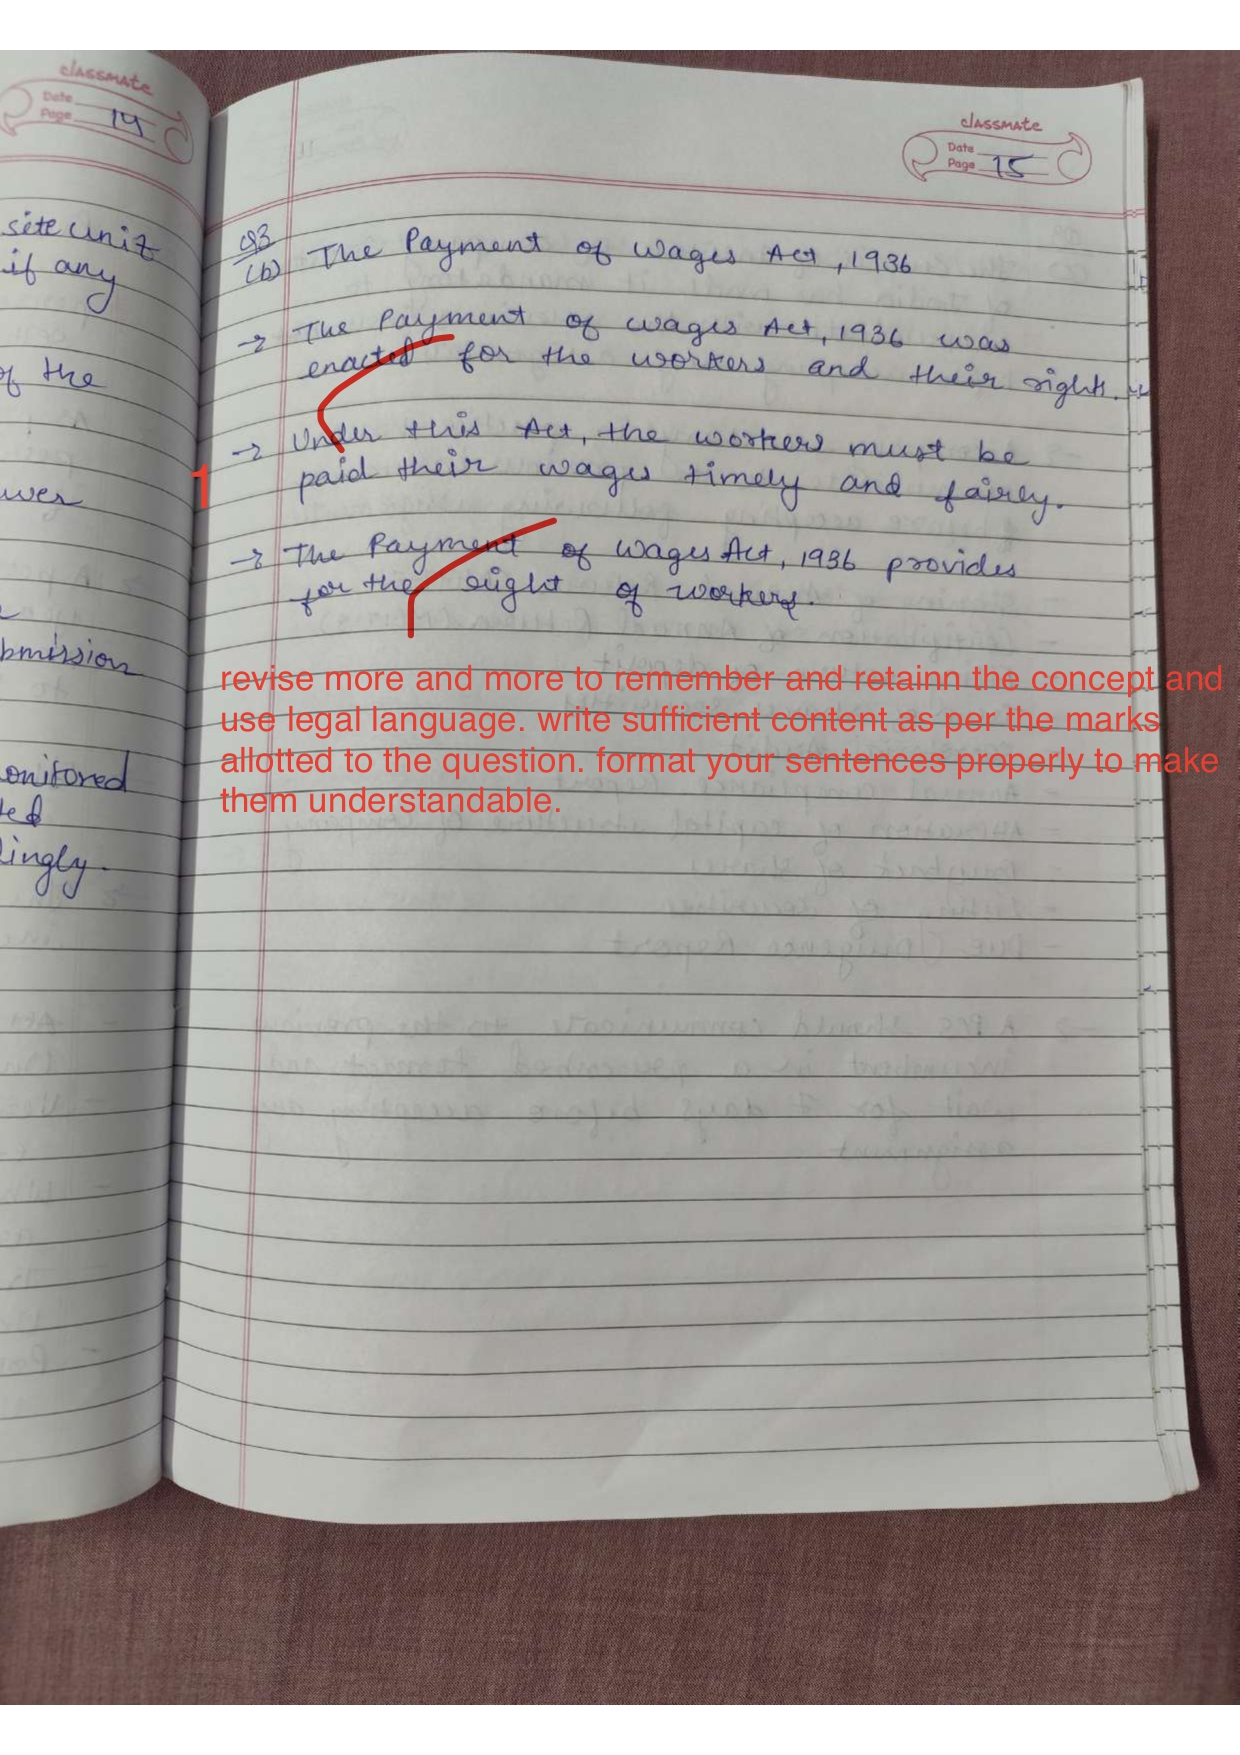 classmate
Date
Page 14
site unit
if any
of the
wer
bmission
onitored
ted
lingly.
classmate
Date
Page 15
Q3
(b) The Payment of Wages Act, 1936
→ The Payment of Wages Act, 1936 was
enacted for the workers and their right.
→ Under this Act, the workers must be
paid their wages timely and fairly.
1
→ The Payment of Wages Act, 1936 provides
for the right of workers.
revise more and more to remember and retainn the concept and
use legal language. write sufficient content as per the marks
allotted to the question. format your sentences properly to make
them understandable.